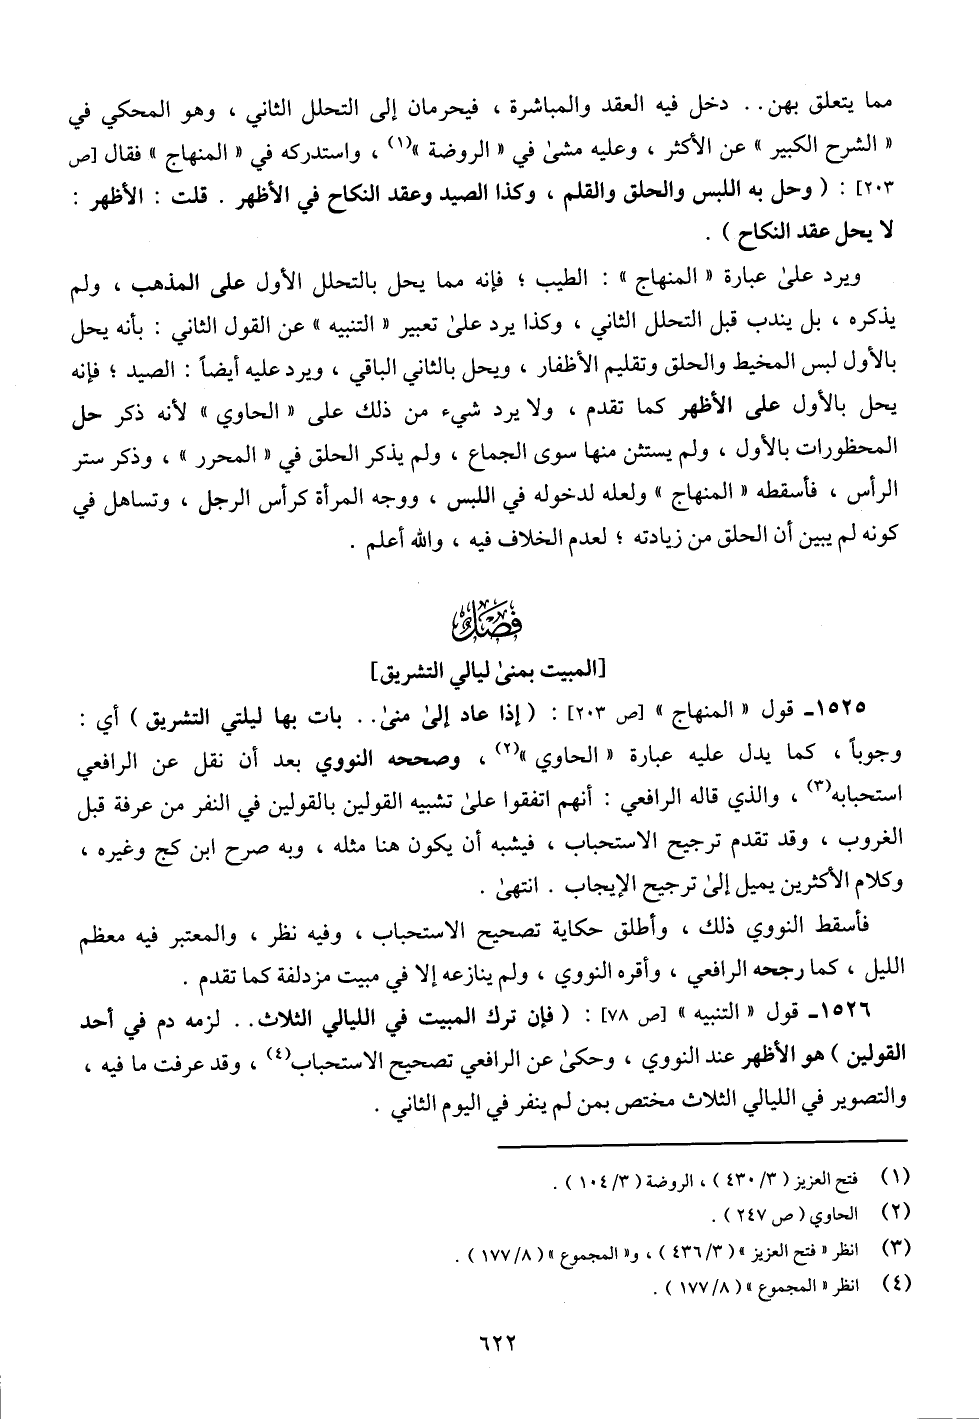 مما يتعلق بهن .. دخل فيه العقد والمباشرة ، فيحرمان إلى التحلل الثاني ، وهو المحكي في
« الشرح الكبير » عن الأكثر ، وعليه مشىٰ في « الروضة »(١) ، واستدركه في « المنهاج » فقال [ص
٢٠٣] : ( وحل به اللبس والحلق والقلم ، وكذا الصيد وعقد النكاح في الأظهر . قلت : الأظهر :
لا يحل عقد النكاح ) .
ويرد علىٰ عبارة « المنهاج » : الطيب ؛ فإنه مما يحل بالتحلل الأول على المذهب ، ولم
يذكره ، بل يندب قبل التحلل الثاني ، وكذا يرد علىٰ تعبير « التنبيه » عن القول الثاني : بأنه يحل
بالأول لبس المخيط والحلق وتقليم الأظفار ، ويحل بالثاني الباقي ، ويرد عليه أيضاً : الصيد ؛ فإنه
يحل بالأول على الأظهر كما تقدم ، ولا يرد شيء من ذلك على « الحاوي » لأنه ذكر حل
المحظورات بالأول ، ولم يستثن منها سوى الجماع ، ولم يذكر الحلق في « المحرر » ، وذكر ستر
الرأس ، فأسقطه « المنهاج » ولعله لدخوله في اللبس ، ووجه المرأة كرأس الرجل ، وتساهل في
كونه لم يبين أن الحلق من زيادته ؛ لعدم الخلاف فيه ، والله أعلم .
فصل
[المبيت بمنىٰ ليالي التشريق]
١٥٢٥ـ قول « المنهاج » [ص ٢٠٣] : ( إذا عاد إلىٰ منىٰ .. بات بها ليلتي التشريق ) أي :
وجوباً ، كما يدل عليه عبارة « الحاوي »(٢) ، وصححه النووي بعد أن نقل عن الرافعي
استحبابه(٣) ، والذي قاله الرافعي : أنهم اتفقوا علىٰ تشبيه القولين بالقولين في النفر من عرفة قبل
الغروب ، وقد تقدم ترجيح الاستحباب ، فيشبه أن يكون هنا مثله ، وبه صرح ابن كج وغيره ،
وكلام الأكثرين يميل إلىٰ ترجيح الإيجاب . انتهىٰ .
فأسقط النووي ذلك ، وأطلق حكاية تصحيح الاستحباب ، وفيه نظر ، والمعتبر فيه معظم
الليل ، كما رجحه الرافعي ، وأقره النووي ، ولم ينازعه إلا في مبيت مزدلفة كما تقدم .
١٥٢٦ـ قول « التنبيه » [ص ٧٨] : ( فإن ترك المبيت في الليالي الثلاث .. لزمه دم في أحد
القولين ) هو الأظهر عند النووي ، وحكىٰ عن الرافعي تصحيح الاستحباب(٤) ، وقد عرفت ما فيه ،
والتصوير في الليالي الثلاث مختص بمن لم ينفر في اليوم الثاني .
(١) فتح العزيز ( ٣/ ٤٣٠ ) ، الروضة ( ٣/ ١٠٤ ) .
(٢) الحاوي ( ص ٢٤٧ ) .
(٣) انظر « فتح العزيز » ( ٣/ ٤٣٦ ) ، و« المجموع » ( ٨/ ١٧٧ ) .
(٤) انظر « المجموع » ( ٨/ ١٧٧ ) .
٦٢٢